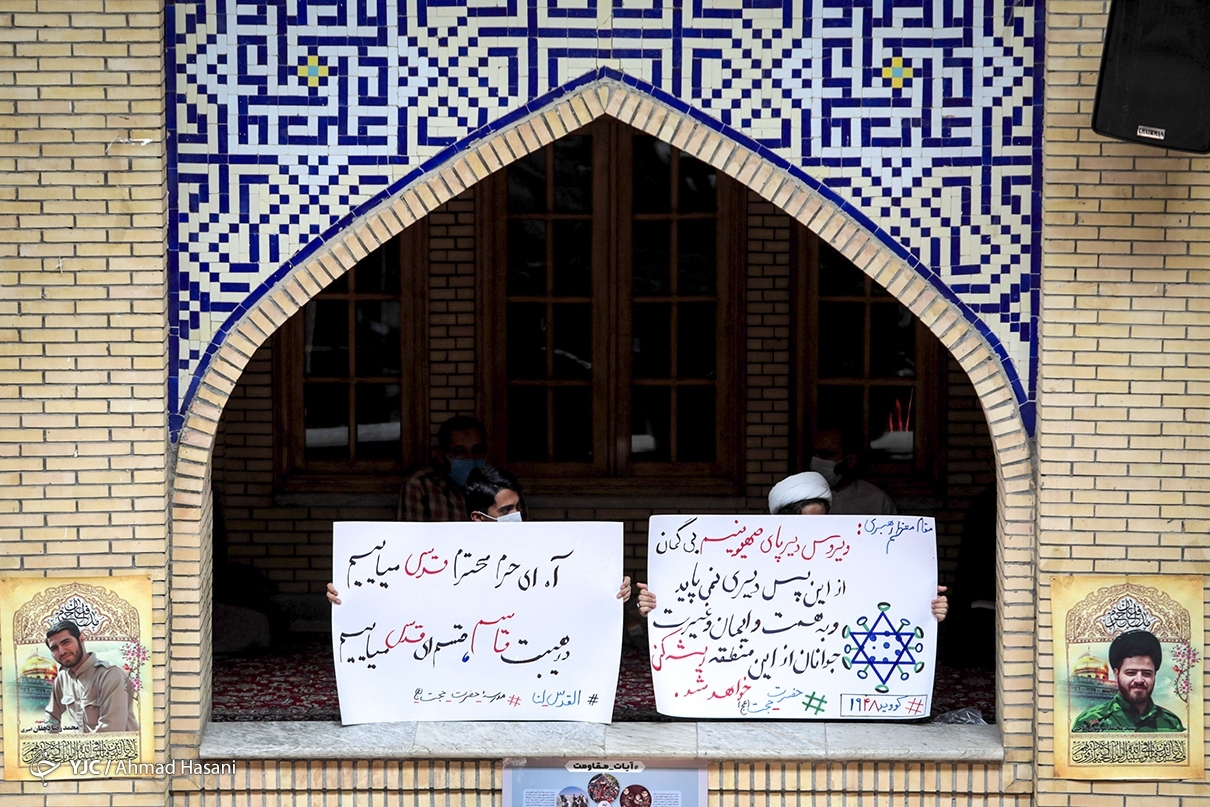 CHAIRMAN
مقام معظم رهبری:
ویروس دیرپای صهیونیسم بی گمان
از این پس دیری نمی پاید
و به همت و ایمان و غیرت
جوانان از این منطقه ریشه کن
خواهد شد.
# حضرت حجت (عج)
# کووید ۱۹۴۸
آه ای حرم محترم قدس میاییم
در هیبت قاسم، قسم ای قدس میاییم
# القدس لنا # مدرسه حضرت حجت (عج)
#آیات_مقاومت
شهید
محمد رضا دهقان امیری
YJC / Ahmad Hasani